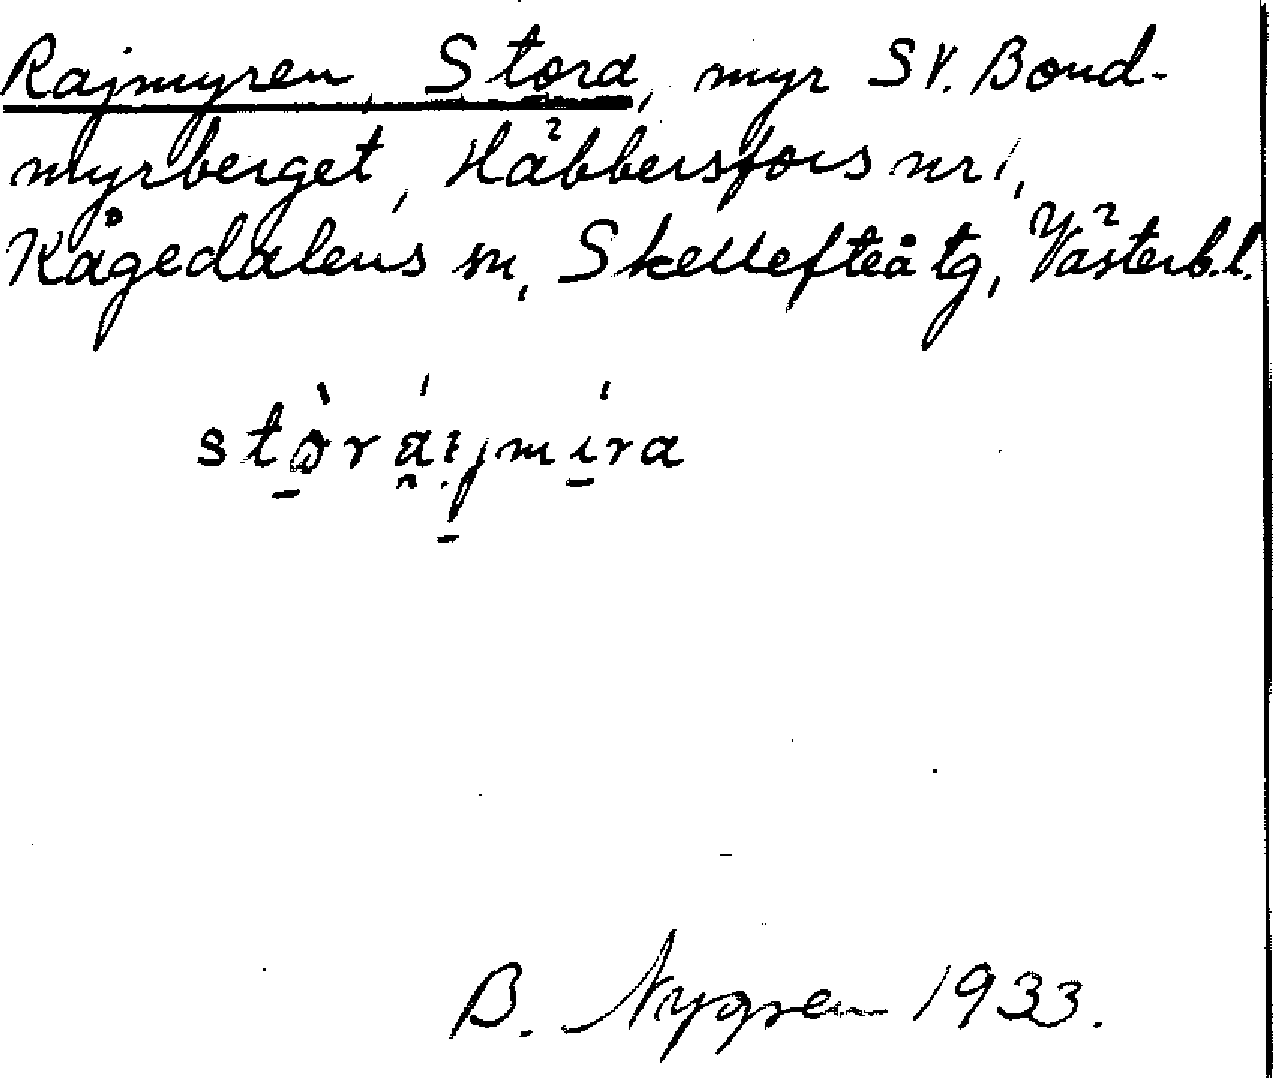 Rajmyren, Stora, myr SV. Bond-
myrberget, Häbbersfors nr 1,
Kågedalens sn, Skellefteå tg, Västerb.l.
B. Nygren 1933.